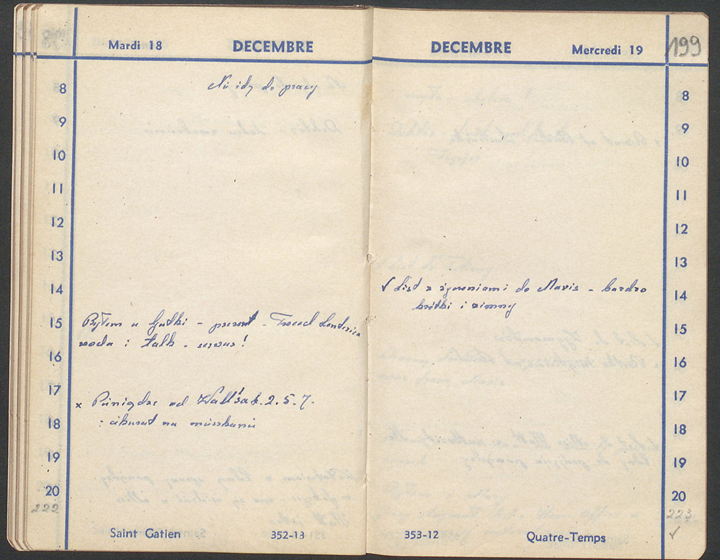 Mardi 18 DECEMBRE
8 Nie idę do pracy
9
10
11
12
13
14
15 Byłem u Gutki - prezent - Tweed Lenteric
16 woda i talk -
17 x Pieniądze od
18 : na mieszkanie
19
20
222
Saint Gatien 352-13
DECEMBRE Mercredi 19 199
8
9
10
11
12
13
14 √ List z życzeniami do Maris - bardzo
krótki i zimny
15
16
17
18
19
20
223
√
353-12 Quatre-Temps